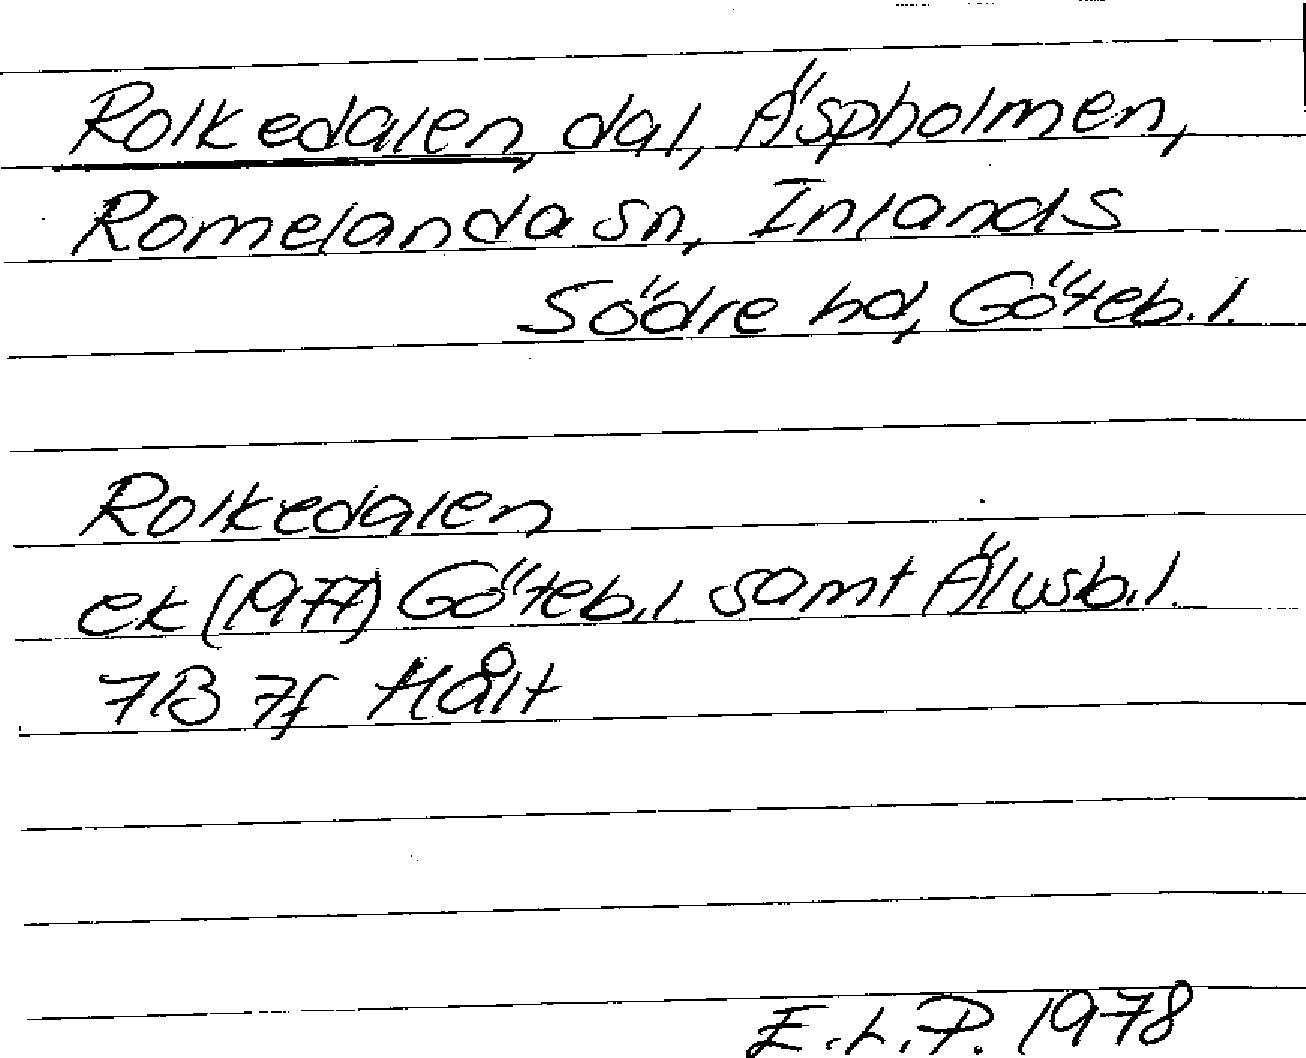 Rolkedalen, dal, Äspholmen,
Romelanda sn, Inlands
Södre hd, Göteb. l.
Rolkedalen
ek (1977) Göteb. l samt Älvsb. l.
7B 7f Hålt
E.L.P. 1978